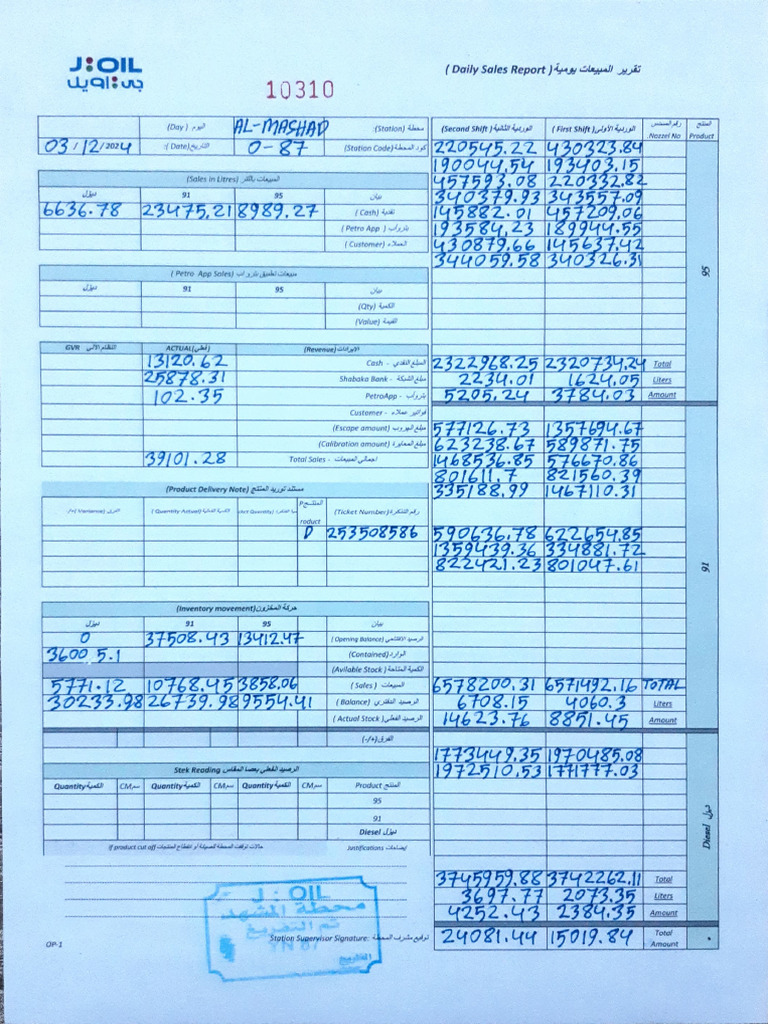 J:OIL
جي أويل
تقرير المبيعات يومية ( Daily Sales Report )
10310
اليوم ( Day ) AL-MASHAD محطة (Station):
03/12/2024 التاريخ (Date ): 0-87 كود المحطة (Station Code)
الوردية الثانية ( Second Shift ) الوردية الأولى ( First Shift ) رقم المسدس Nozzel No المنتج Product
220545.22 430323.84
190044.54 193403.15
457593.08 220332.82
340379.93 343557.09
145882.01 457209.06
193584.23 189944.55
430879.66 145637.42
344059.58 340326.31
95
2322968.25 2320734.24 Total
2234.01 1624.05 Liters
5205.24 3784.03 Amount
577126.73 1357694.67
623238.67 589871.75
1468536.85 576670.86
801611.7 821560.39
335188.99 1467110.31
590636.78 622654.85
1359439.36 334881.72
822421.23 801047.61
91
6578200.31 6571492.16 TOTAL
6708.15 4060.3 Liters
14623.76 8851.45 Amount
1773449.35 1970485.08
1972510.53 1771777.03
ديزل Diesel
3745959.88 3742262.11 Total
3697.77 2073.35 Liters
4252.43 2384.35 Amount
24081.44 15019.84 Total Amount
المبيعات بالتر (Sales in Litres)
ديزل 91 95 بيان
6636.78 23475.21 8989.27 نقدية (Cash)
بتروآب ( Petro App )
العملاء ( Customer )
مبيعات تطبيق بترو آب ( Petro App Sales)
ديزل 91 95 بيان
الكمية (Qty)
القيمة (Value)
GVR النظام الآلي ACTUAL(فعلي) الايرادات (Revenue)
13120.62 Cash - المبلغ النقدي
25878.31 Shabaka Bank - مبلغ الشبكة
102.35 PetroApp - بتروآب
Customer - فواتير عملاء
(Escape amount) مبلغ الهروب
(Calibration amount) مبلغ المعايرة
39101.28 Total Sales - اجمالي المبيعات
مستند توريد المنتج (Product Delivery Note)
( Quantity Actual) المنتج Product رقم التذكرة (Ticket Number)
D 253508586
حركة المخزون (Inventory movement)
ديزل 91 95 بيان
0 37508.43 13412.47 الرصيد الافتتاحي ( Opening Balance)
36005.1 الوارد (Contained)
الكمية المتاحة ( Avilable Stock)
5771.12 10768.45 3858.06 المبيعات ( Sales )
30233.98 26739.98 9554.41 الرصيد الدفتري ( Balance)
الرصيد الفعلي ( Actual Stock )
الفرق (+/-)
Stek Reading الرصيد الفعلي بعصا المقاس
Quantity الكمية CM سم Quantity الكمية CM سم Quantity الكمية CM سم Product المنتج
95
91
Diesel ديزل
If product cut off حالات توقفت المحطة للصيانة أو انقطاع المنتجات Justifications ايضاحات
J:OIL
محطة المشهد
تم التفريغ
التاريخ
Station Supervisor Signature: توقيع مشرف المحطة
OP-1